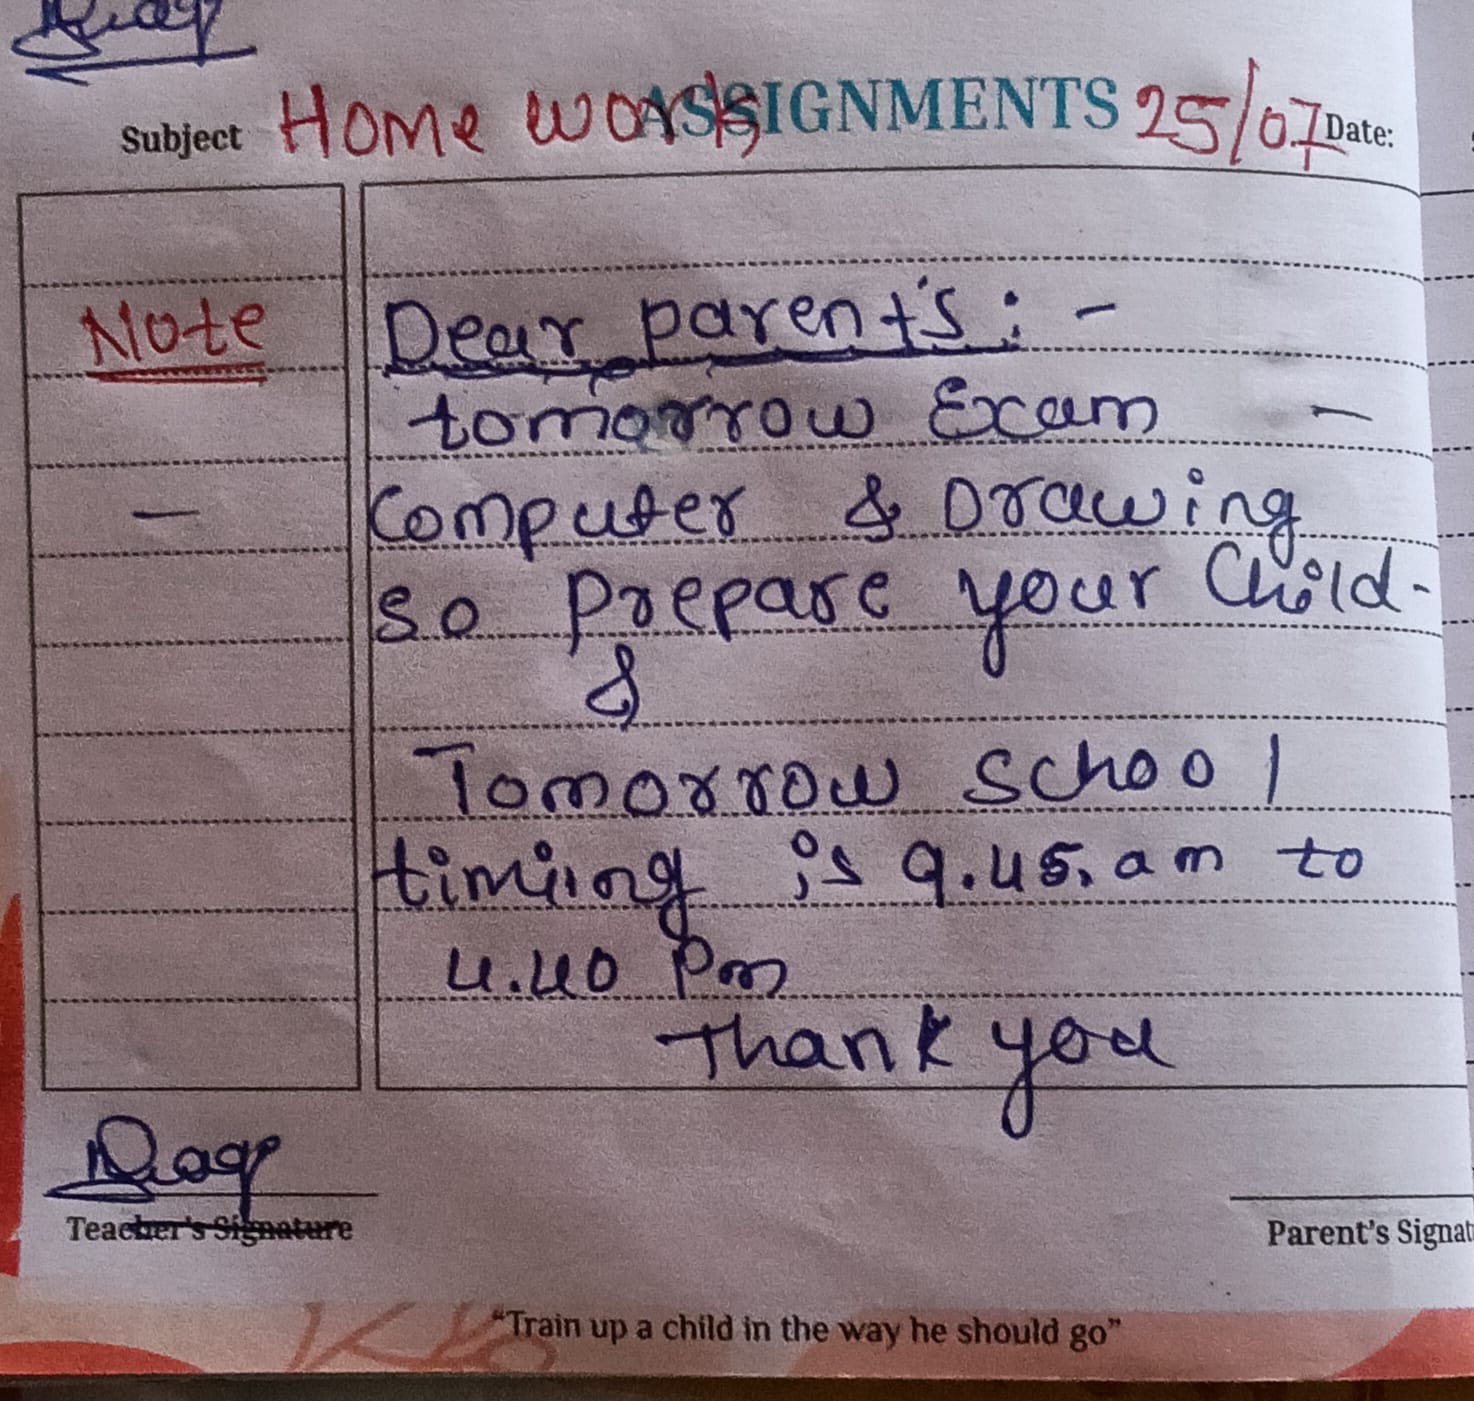 ASSIGNMENTS
Subject Home work 25/07 Date:
Note Dear parent's : -
tomorrow Exam -
- Computer & Drawing
so prepare your Child-
&
Tomorrow school
timing is 9.45.am to
4.40 Pm
Thank you
Teacher's Signature
Parent's Signat
"Train up a child in the way he should go"